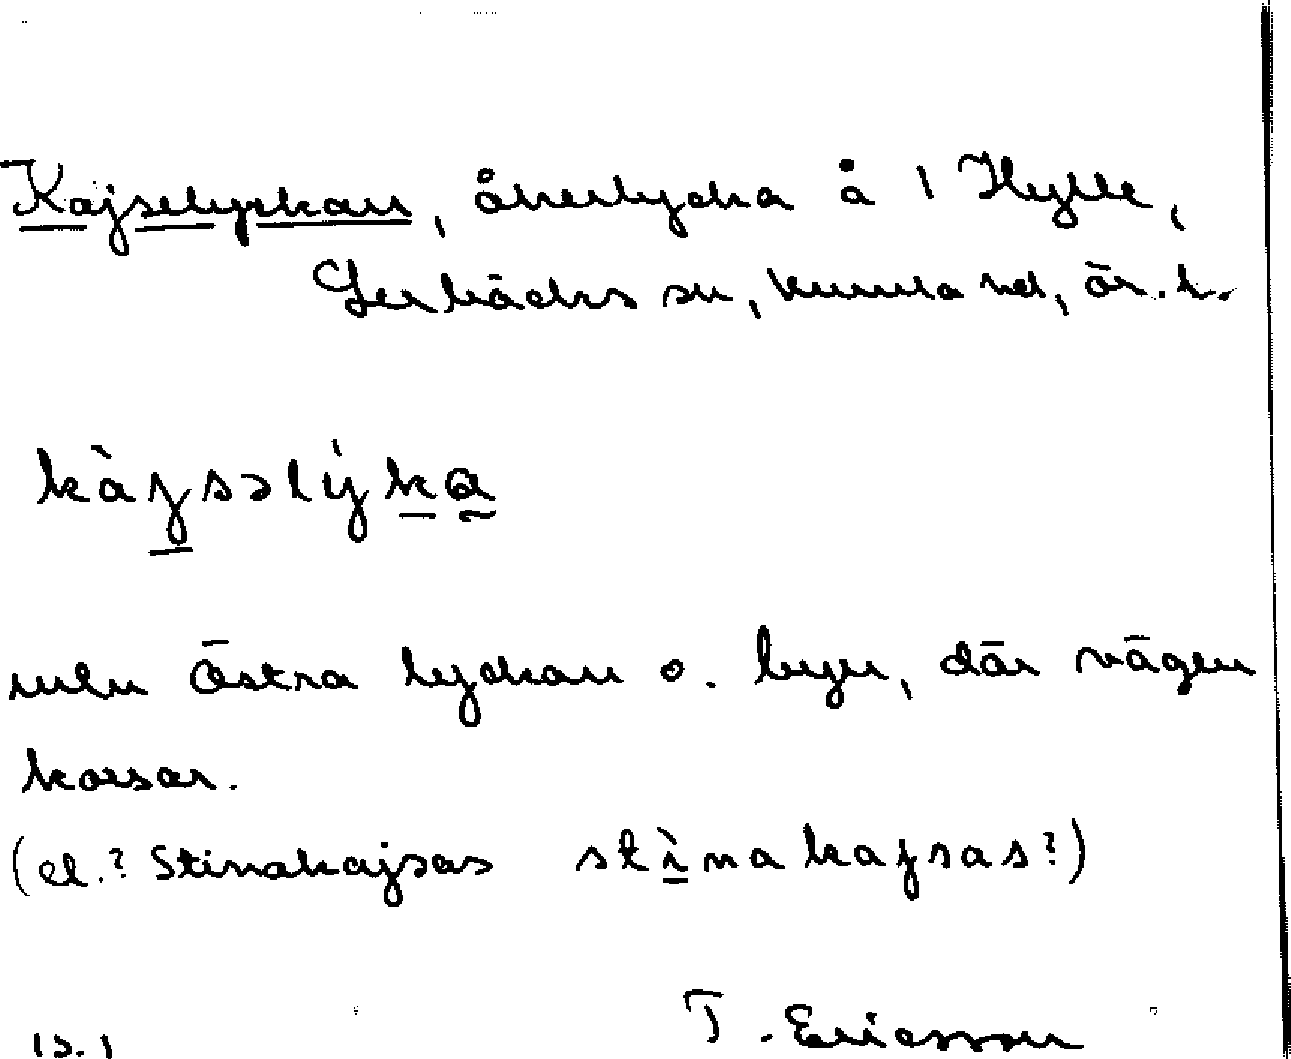 Kajselyckan, åkerlycka å 1 Hylle,
Lerbäcks sn, Kumla hd, Ör. l.
kàjsəlýka
mln Östra lyckan o. byn, där vägen
korsar.
(el.? Stinakajsas stìnakajsas?)
T. Ericsson